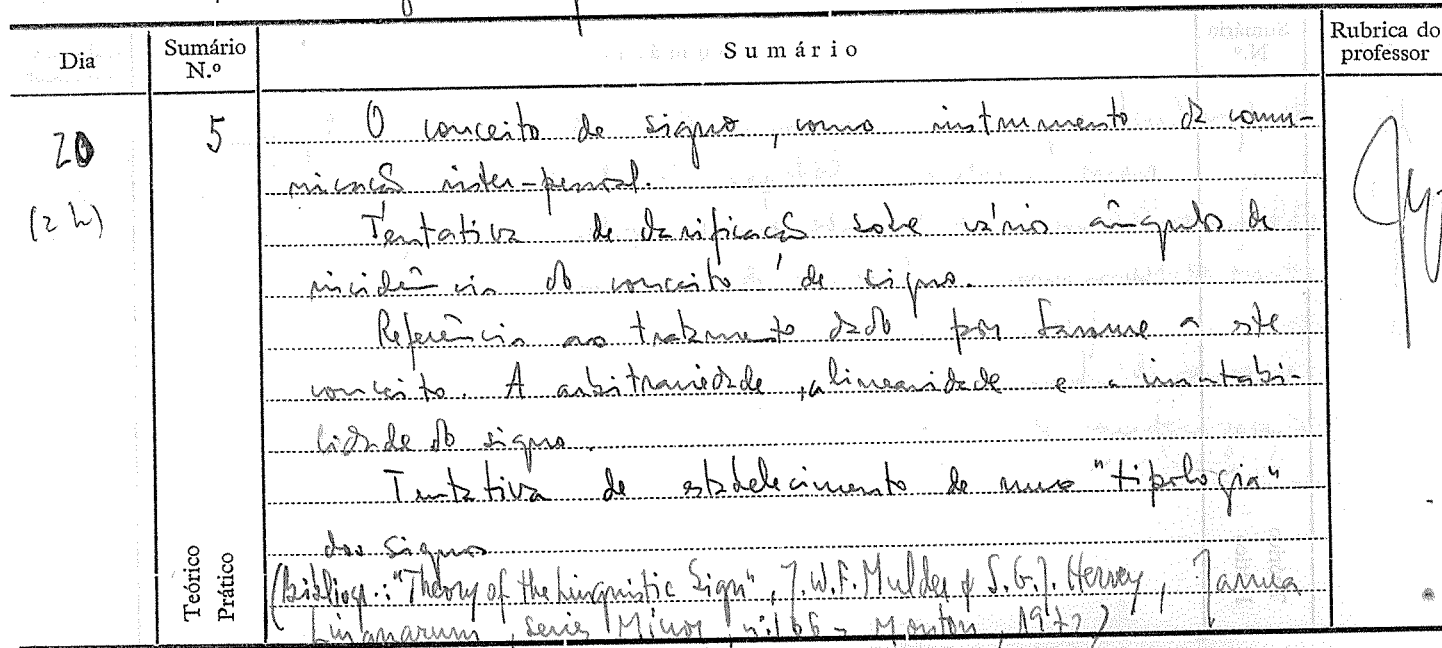 Dia
Sumário N.º
Sumário
Rubrica do professor
20
(2 h)
5
O conceito de signo, como instrumento de comu-
nicação inter-pessoal.
Tentativa de clarificação sobre vários ângulos de
incidência do conceito de signo.
Referência ao tratamento dado por Saussure a este
conceito. A arbitrariedade, a linearidade e a imutabi-
lidade do signo.
Tentativa de estabelecimento de uma "tipologia"
dos signos
(Bibliogr.: "Theory of the Linguistic Sign", J.W.F. Mulder & S.G.J. Hervey, Janua
Linguarum, series Minor, nº 166 - Mouton, 1972)
Teórico
Prático